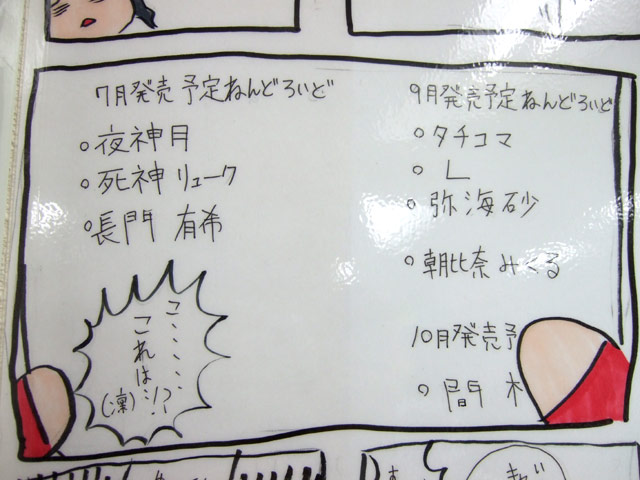 7月発売予定ねんどろいど
○夜神月
○死神リューク
○長門 有希
こ、、、、、
これは…!?
(凜)
9月発売予定ねんどろいど
○タチコマ
○L
○弥海砂
○朝比奈みくる
10月発売予
○間 木